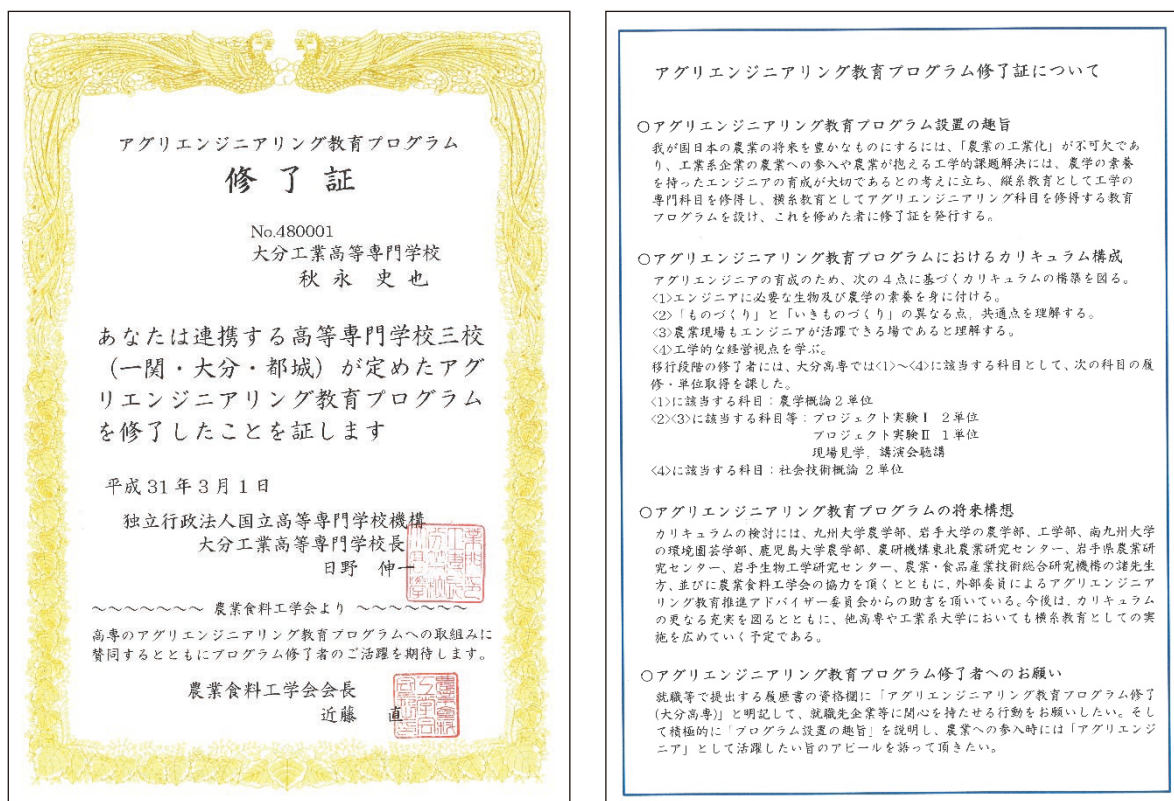 アグリエンジニアリング教育プログラム
修了証
No.480001
大分工業高等専門学校
秋永史也
あなたは連携する高等専門学校三校
（一関・大分・都城）が定めたアグ
リエンジニアリング教育プログラム
を修了したことを証します
平成31年3月1日
独立行政法人国立高等専門学校機構
大分工業高等専門学校長
日野 伸一
～～～～～～～ 農業食料工学会より ～～～～～～～
高専のアグリエンジニアリング教育プログラムへの取組みに
賛同するとともにプログラム修了者のご活躍を期待します。
農業食料工学会会長
近藤 直
アグリエンジニアリング教育プログラム修了証について
○アグリエンジニアリング教育プログラム設置の趣旨
我が国日本の農業の将来を豊かなものにするには、「農業の工業化」が不可欠であ
り、工業系企業の農業への参入や農業が抱える工学的課題解決には、農学の素養
を持ったエンジニアの育成が大切であるとの考えに立ち、縦糸教育として工学の
専門科目を修得し、横糸教育としてアグリエンジニアリング科目を修得する教育
プログラムを設け、これを修めた者に修了証を発行する。
○アグリエンジニアリング教育プログラムにおけるカリキュラム構成
アグリエンジニアの育成のため、次の4点に基づくカリキュラムの構築を図る。
<1>エンジニアに必要な生物及び農学の素養を身に付ける。
<2>「ものづくり」と「いきものづくり」の異なる点、共通点を理解する。
<3>農業現場もエンジニアが活躍できる場であると理解する。
<4>工学的な経営視点を学ぶ。
移行段階の修了者には、大分高専では<1>～<4>に該当する科目として、次の科目の履
修・単位取得を課した。
<1>に該当する科目：農学概論2単位
<2><3>に該当する科目等：プロジェクト実験Ⅰ 2単位
プロジェクト実験Ⅱ 1単位
現場見学、講演会聴講
<4>に該当する科目：社会技術概論 2単位
○アグリエンジニアリング教育プログラムの将来構想
カリキュラムの検討には、九州大学農学部、岩手大学の農学部、工学部、南九州大学
の環境園芸学部、鹿児島大学農学部、農研機構東北農業研究センター、岩手県農業研
究センター、岩手生物工学研究センター、農業・食品産業技術総合研究機構の諸先生
方、並びに農業食料工学会の協力を頂くとともに、外部委員によるアグリエンジニア
リング教育推進アドバイザー委員会からの助言を頂いている。今後は、カリキュラム
の更なる充実を図るとともに、他高専や工業系大学においても横糸教育としての実
施を広めていく予定である。
○アグリエンジニアリング教育プログラム修了者へのお願い
就職等で提出する履歴書の資格欄に「アグリエンジニアリング教育プログラム修了
(大分高専)」と明記して、就職先企業等に関心を持たせる行動をお願いしたい。そし
て積極的に「プログラム設置の趣旨」を説明し、農業への参入時には「アグリエンジ
ニア」として活躍したい旨のアピールを語って頂きたい。